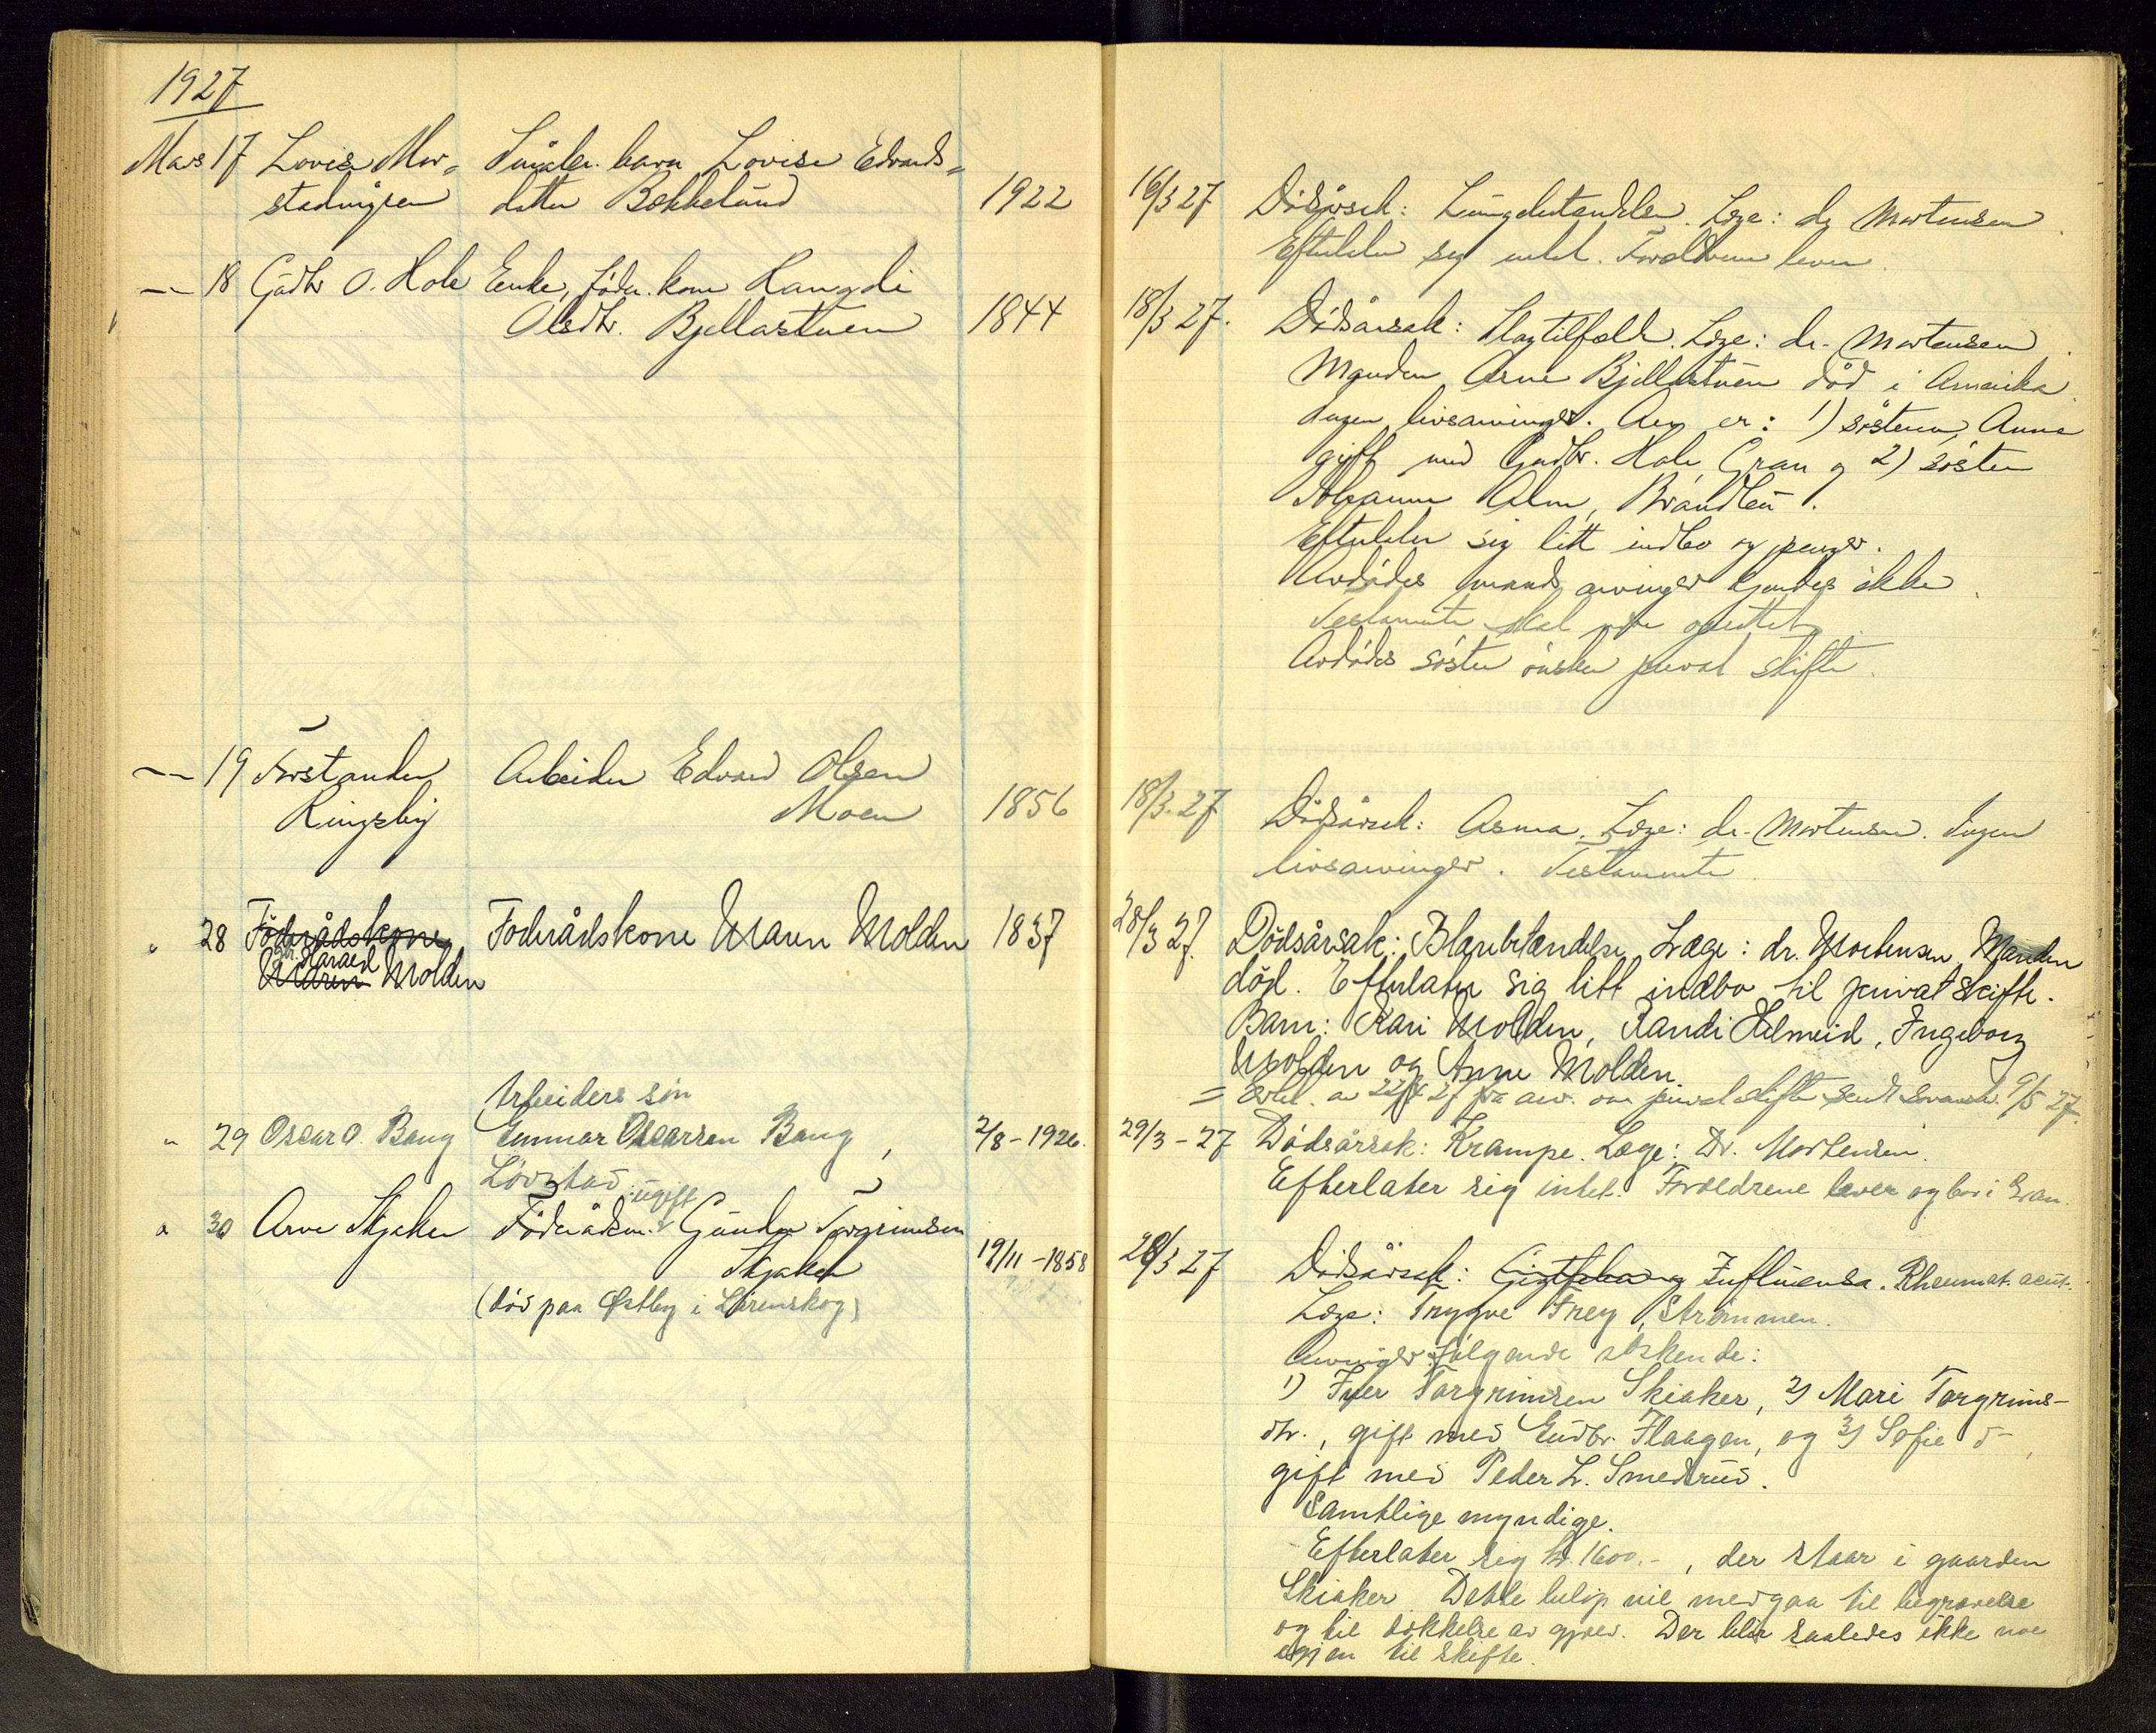 1927
Mars 17 Lovise Mor-
stadnýgen
Småbr. barn Lovise Edvards-
datter Bekkelund 1922
16/3 27 Dödsårsak: Lungebetændelse. Læge: dr Mortensen
Efterlater sig intet. Forældrene lever.
18 Gudbr O. Hole Enke, föder. kone Hangdi
Olsdtr. Bjellastuen 1844
18/3 27. Dödsårsak: Slagtilfælde. Læge: dr. Mortensen.
Manden Arne Bjellastuen död i Amerika.
Ingen livsarvinger. Arv. er: 1) söstern, Anna
gift med Gudbr. Hole, Gran og 2) söster
Johanne Alm, Brandbu.
Efterlater sig litt indbo og penger.
Avdödes mands arvinger kjendes ikke.
Testamente skal være oprettet.
Avdödes söster önsker privat skifte.
19 Forstander
Ringsby
Arbeider Edvard Olsen
Moen 1856
18/3. 27 Dödsårsak: Asma. Læge: dr. Mortensen. Ingen
livsarvinger. Testamente.
" 28 Föderådskone
Harald
Maren Molden
Föderådskone Maren Molden 1837
28/3 27. Dödsårsak: Blærebetændelse. Læge: dr. Mortensen. Manden
död. Efterlater sig litt indbo til privat skifte.
Barn: Kari Molden, Randi Helmeid, Ingeborg
Molden og Anne Molden.
= Erkl. av 22/4 27 fra arv. om privat skifte sendt sorensk. 9/5 27.
" 29 Oscar O. Bang
Arbeiders sön
Gunnar Oscarsen Bang,
Lövstad 2/8 - 1926.
29/3 - 27 Dödsårsak: Krampe. Læge: Dr. Mortensen.
Efterlater sig intet. Forældrene lever og bor i Gran.
" 30 Arve Skjaker
ugift
Föderådsm. Gunder Torgrimsen
Skjaker 19/11 - 1858
(död paa Östby i Lörenskog)
28/3 27 Dödsårsak: Gigtfeber og Influensa. Rheumat. acut.
Læge: Trygve Frey, Strömmen.
Arvinger fölgende söskende:
1) Iver Torgrimsen Skiaker, 2) Mari Torgrims-
dtr., gift med Gudbr. Flaagen, og 3) Sofie d-,
gift med Peder L. Smedrud.
Samtlige myndige.
Efterlater sig kr. 1600.-, der staar i gaarden
Skiaker. Dette belöp vil medgaa til begravelse
og til dækkelse av gjæld. Der blir saaledes ikke noe
igjen til skifte.